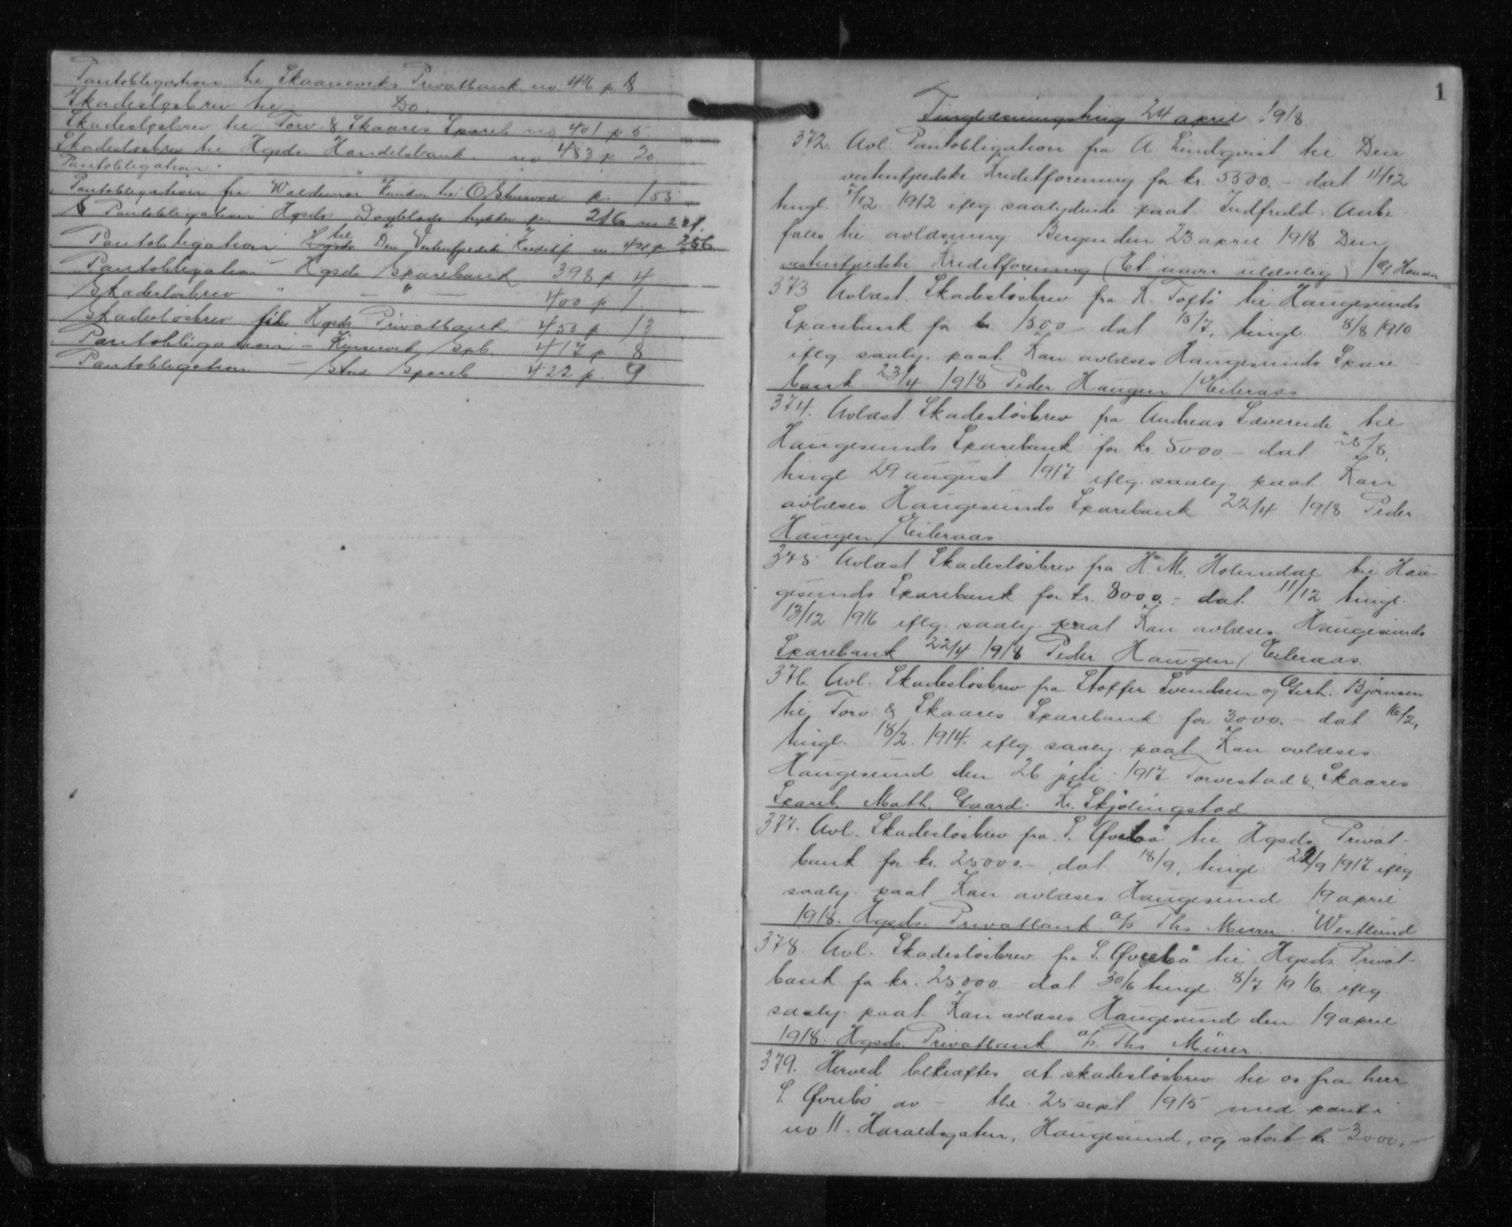 Pantobligation til Skaanevik Privatbank no 46 p 8
Skadesløsbrev til Do.
Skadesløsbrev til Torv. & Skaares Spareb no 401 p 5
Skadesløsbrev til Hgsds Handelsbank no 483 p 20
Pantobligation "
Pantobligation fra Waldemar til O. p. 155
Pantobligation Hgsds Dagblads p. 216
Pantobligation til Den Vestenfjeldske Kreditf. no 421 p 256
Pantobligation - Hgsds Sparebank 398 p 4
Skadesløsbrev " — " — 400 p 1
Skadesløsbrev til Hgsds Privatbank 450 p. 13
Pantobligation - Spb. 417 p 8
Pantobligation - Spareb 422 p. 9
1
Tinglæsningsdag 24 april 1918
372. Avl. Pantobligation fra A Lindqvist til Den
vestenfjeldske Kreditforening for kr. 5500.- dat 11/12
tingl. 1912 iflg saalydende paat Indfridd. Anbe-
fales til avlæsning Bergen den 23 april 1918 Den
vestenfjeldske Kreditforening (Et navn ulæselig) /
373 Avlæst. Skadesløsbrev fra K. Toftø til Haugesunds
Sparebank for kr. 1500 - dat 15/7, tingl. 8/8 1910
iflg saaly. paat Kan avlæses Haugesunds Spare-
bank 23/4 1918 Peder Haugen / Eileraas
374. Avlæst. Skadesløsbrev fra Andreas Sævereide til
Haugesunds Sparebank for kr. 5000.- dat 28/8,
tingl. 29 august 1917 iflg. saaly paat Kan
avlæses Haugesunds Sparebank 22/4 1918 Peder
Haugen / Eileraas
375 Avlæst Skadesløsbrev fra H. M. Holmedal til Hau-
gesunds Sparebank for kr. 8000.- dat. 11/12 tingl.
13/12 1916 iflg. saaly. paat Kan avlæses. Haugesunds
Sparebank 22/4 1918 Peder Haugen / Eileraas
376. Avl. Skadesløsbrev fra Stoffer Svendsen og Gerh. Bjørnsen
til Torv. & Skaares Sparebank for 3000.- dat 16/2,
tingl. 18/2. 1914. iflg. saaly. paat Kan avlæses.
Haugesund den 26 juli 1917 Torvestad & Skaares
Spareb. Math. Gaard. Kr. Skjølingstad
377. Avl. Skadesløsbrev fra S. Øvrebø til Hgsds Privat-
bank for kr. 25000.- dat 18/9, tingl 22/9 1917 iflg
saaly. paat Kan avlæses Haugesund 19 april
1918. Hgsds. Privatbank a/s Ths Mürer. Westlund
378. Avl. Skadesløsbrev fra S. Øvrebø til Hgsds. Privat-
bank for kr. 25000 - dat 30/6 tingl. 8/7 1916 iflg.
saaly. paat Kan avlæses Haugesund den 19 april
1918. Hgsds. Privatbank a/s Ths Mürer.
379. Herved bekræftes at skadesløsbrev til os fra herr
S. Øvrebø av - the. 25 sept 1915 med pant i
no 11. Haraldsgaten, Haugesund, og stort kr 3000.-